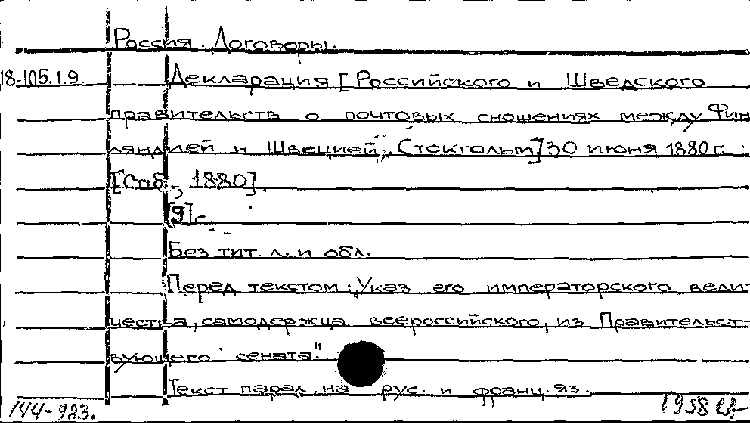 Россия. Договоры.
18-105.1.9 Декларация [Российского и Шведского
правительств о почтовых сношениях между Фин
ляндией и Швецией, Стокгольм] 30 июня 1880 г.
[Спб., 1880].
[9] с.
Без тит. л. и обл.
Перед текстом: Указ его императорского вели
чества, самодержца всероссийского, из Правительст
вующего сената."
Текст парал. на рус. и франц. яз.
144-983. 1958